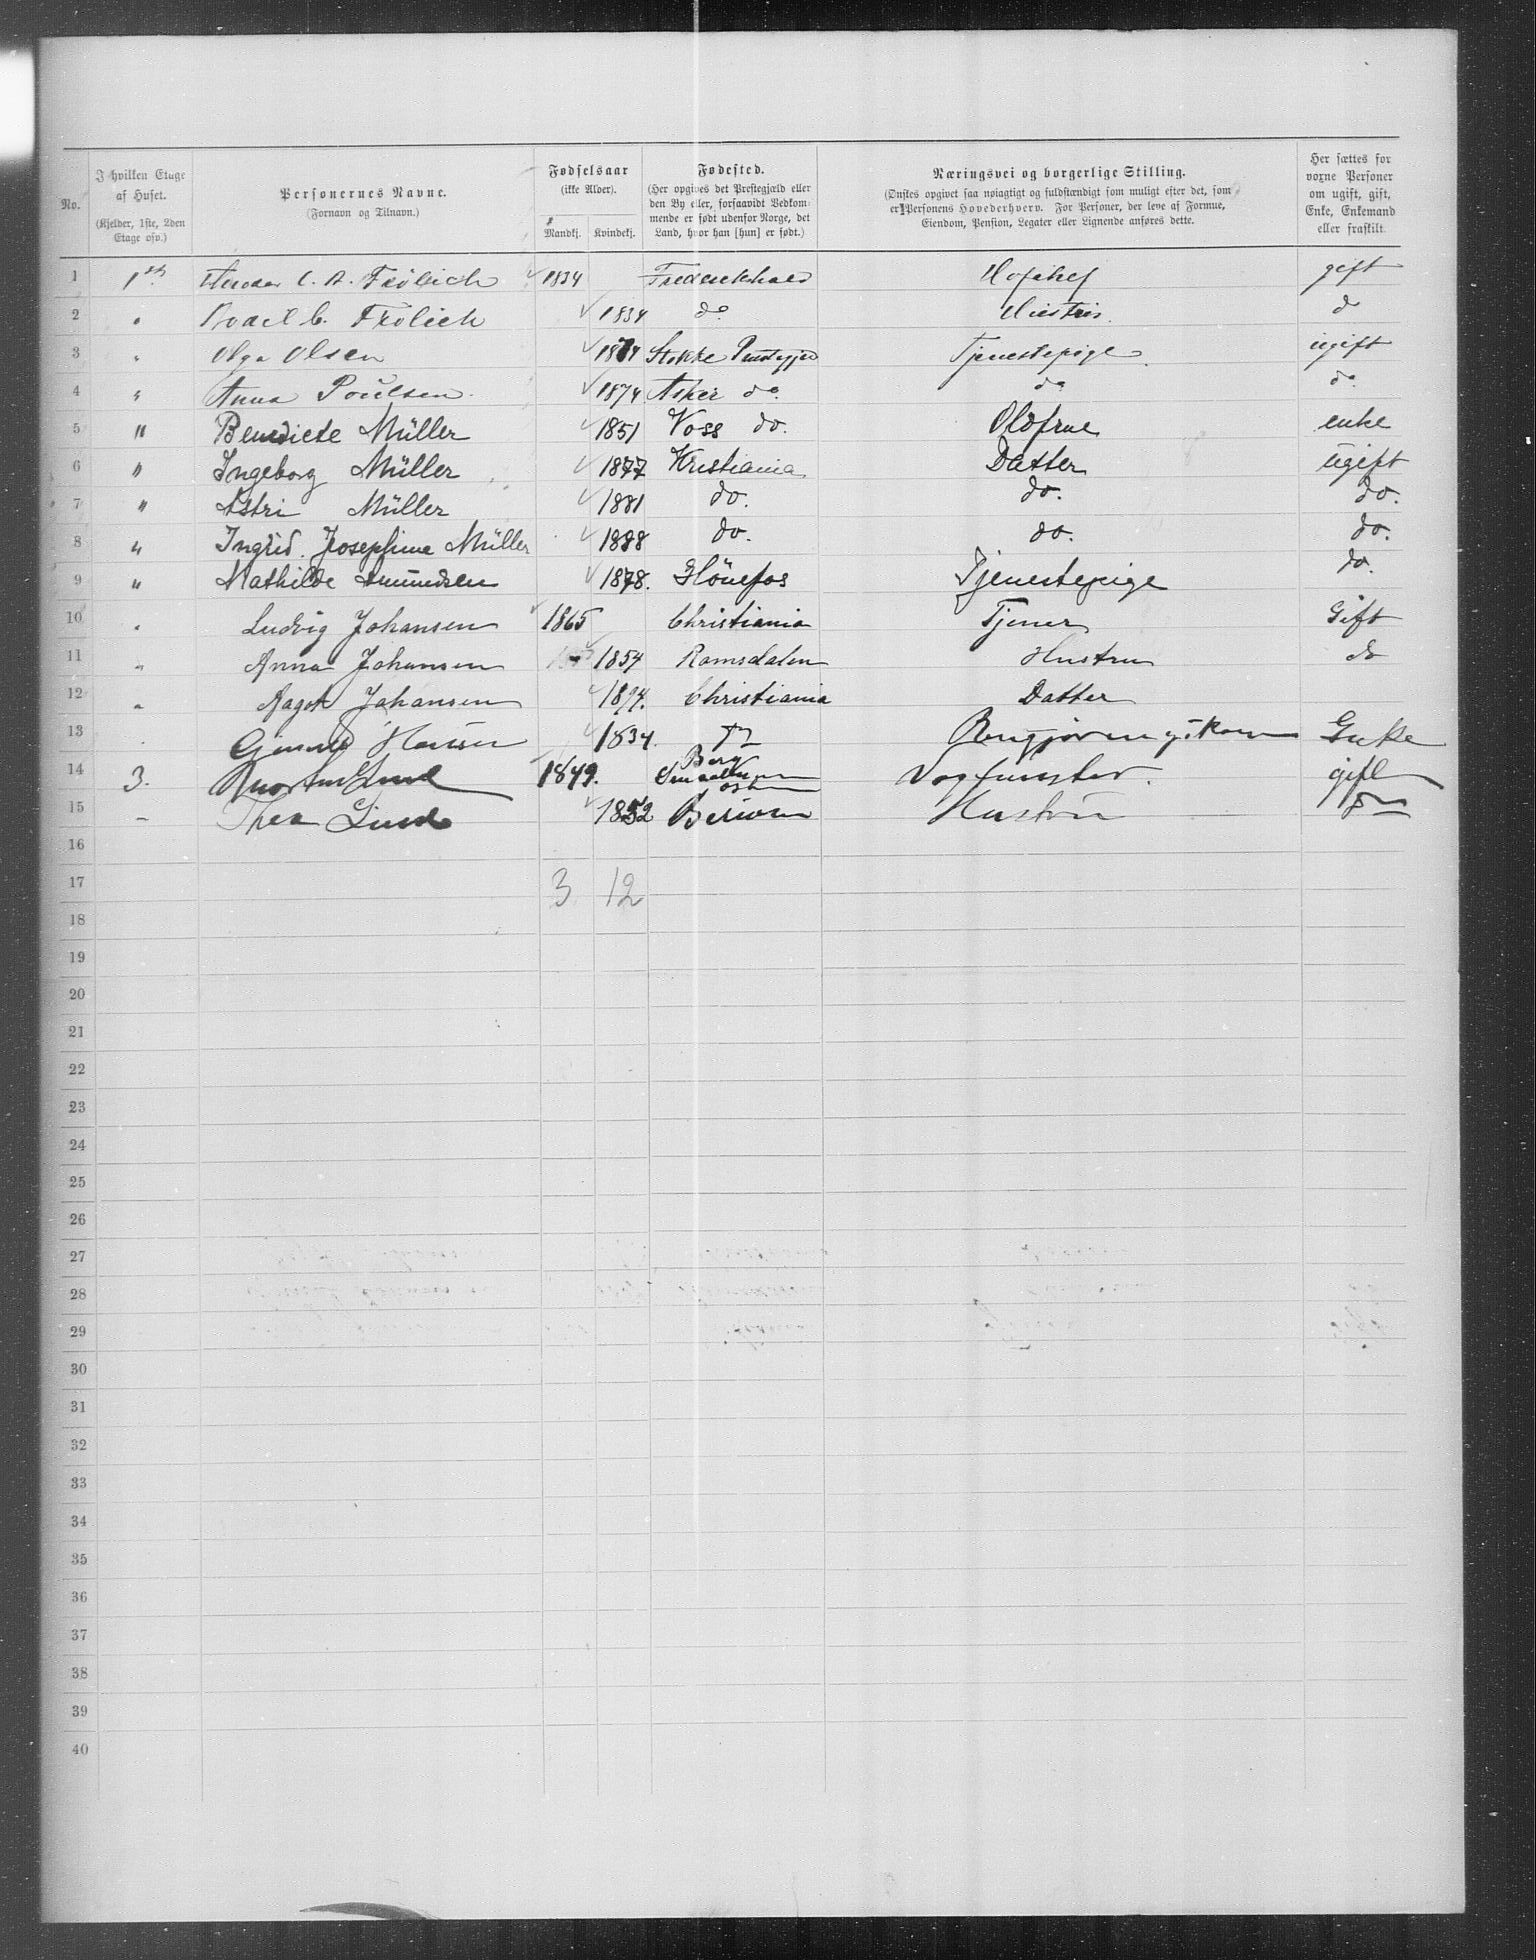 No. | I hvilken Etage af Huset. (Kjelder, 1ste, 2den Etage osv.) | Personernes Navne. (Fornavn og Tilnavn.) | Fødselsaar (ikke Alder). Mandkj. Kvindekj. | Fødested. (Her opgives det Prestegjæld eller den By eller, forsaavidt Vedkommende er født udenfor Norge, det Land, hvor han [hun] er født.) | Næringsvei og borgerlige Stilling. (Ønskes opgivet saa nøiagtigt og fuldstændigt som muligt efter det, som er Personens Hovederhverv. For Personer, der leve af Formue, Eiendom, Pension, Legater eller Lignende anføres dette. | Her sættes for voxne Personer om ugift, gift, Enke, Enkemand eller fraskilt.
1 1ste C. A. Frölich 1834 Frederikshald Hofchef gift
2 " C. Frölich 1834 do Hustru d
3 " Olga Olsen 1874 Stokke Tjenestepige ugift
4 " Anna Poulsen 1874 Asker do. do do
5 " Benedicte Müller 1851 Voss do. Oldfrue enke
6 " Ingeborg Müller 1877 Kristiania Datter ugift
7 " Astri Müller 1881 do. do. do.
8 " Ingrid Josephine Müller 1888 do. do. do.
9 " Mathilde Amundsen 1878. Hönefos Tjenestepige do.
10 " Ludvig Johansen 1865 Christiania Tjener Gift
11 " Anna Johansen 1854 Romsdalen Hustru do
12 " Aagot Johansen 1894. Christiania Datter
13 Hansen 1834. Rengjøringskone Enke
14 3. 1849. Berg Vogtmester. gift
15 – Thea Lund 1852 Berum Hustru
16
17 3 12
18
19
20
21
22
23
24
25
26
27
28
29
30
31
32
33
34
35
36
37
38
39
40